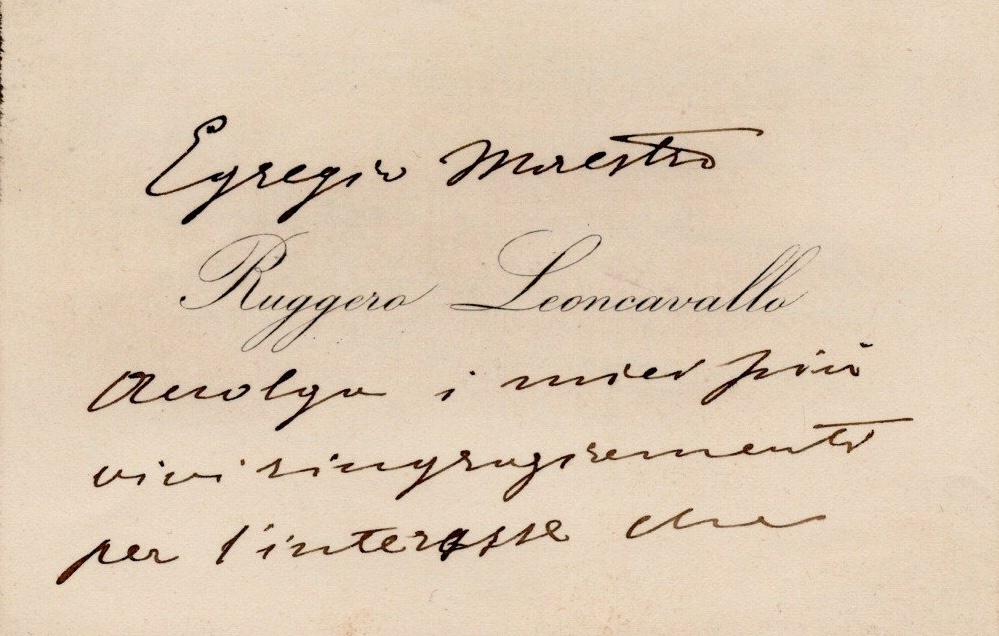 Egregio Maestro
Ruggero Leoncavallo
Accolga i miei più
vivi ringraziamenti
per l'interesse che